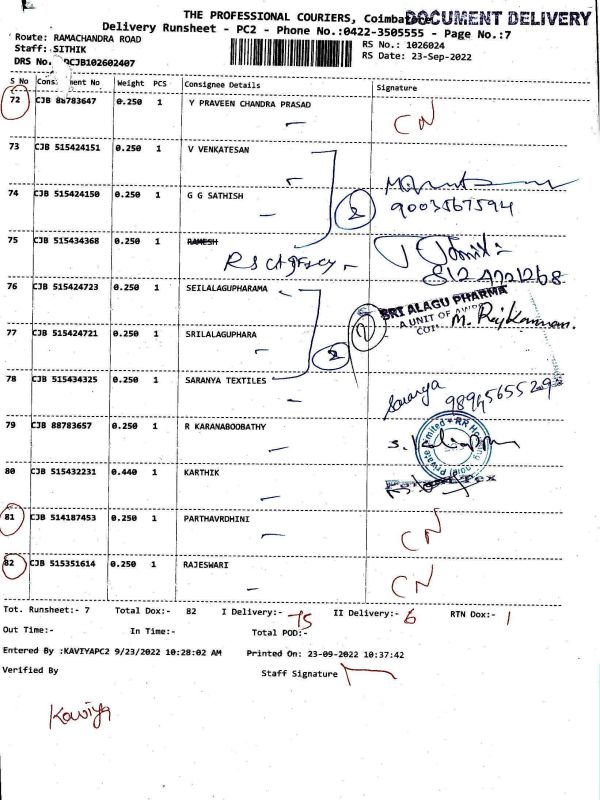 THE PROFESSIONAL COURIERS, DOCUMENT DELIVERY
Delivery Runsheet - PC2 - Phone No.:0422-3505555 - Page No.:7
Route: RAMACHANDRA ROAD
RS No.: 1026024
Staff: SITHIK
RS Date: 23-Sep-2022
DRS No. CJB102602407
S No Consignment No Weight PCS Consignee Details Signature
72 CJB 88783647 0.250 1 Y PRAVEEN CHANDRA PRASAD CN
73 CJB 515424151 0.250 1 V VENKATESAN
74 CJB 515424150 0.250 1 G G SATHISH 2 9003567594
75 CJB 515434368 0.250 1 RAMESH
76 CJB 515424723 0.250 1 SEILALAGUPHARAMA SRI ALAGU PHARMA
A UNIT OF
77 CJB 515424721 0.250 1 SRILALAGUPHARA 2
78 CJB 515434325 0.250 1 SARANYA TEXTILES Saranya
79 CJB 88783657 0.250 1 R KARANABOOBATHY
80 CJB 515432231 0.440 1 KARTHIK
81 CJB 514187453 0.250 1 PARTHAVRDHINI CN
82 CJB 515351614 0.250 1 RAJESWARI CN
Tot. Runsheet:- 7 Total Dox:- 82 I Delivery:- 75 II Delivery:- 6 RTN Dox:- 1
Out Time:- In Time:- Total POD:-
Entered By :KAVIYAPC2 9/23/2022 10:28:02 AM Printed On: 23-09-2022 10:37:42
Verified By Staff Signature
Kaviya